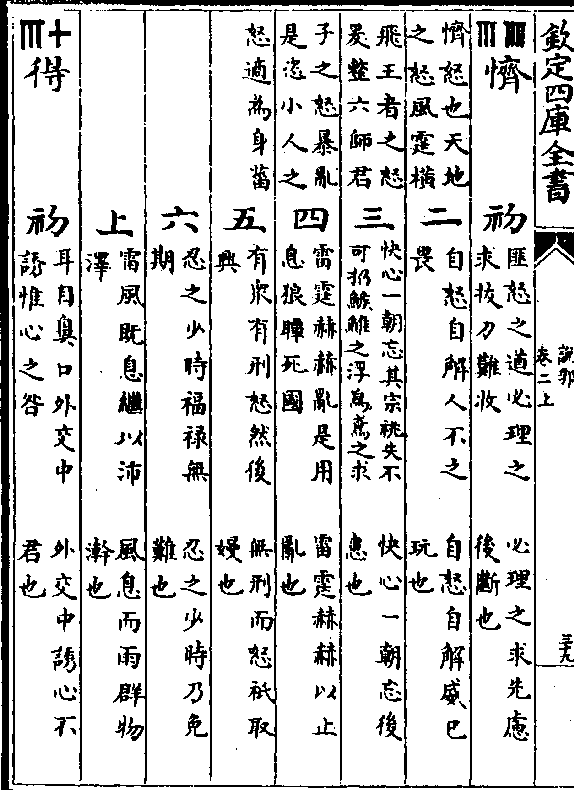 欽定四庫全書
説郛
卷二上
懠
懠怒也天地
之怒風霆橫
飛王者之怒
爰整六師君
子之怒暴亂
是小人之
怒適為身菑
初
匪怒之道必理之
求拔刀難收
必理之求先慮
後斷也
二
自怒自解人不之
畏
自怒自解威已
玩也
三
快心一朝忘其宗祧失不
可扔鯸鮧之浮為鳶之求
快心一朝忘後
患也
四
雷霆赫赫亂是用
息狼瞫死國
雷霆赫赫以止
亂也
五
有衆有刑怒然後
興
無刑而怒祇取
嫚也
六
忍之少時福禄無
期
忍之少時乃免
難也
上
雷風既息繼以沛
澤
風息而雨群物
澣也
得
初
耳目鼻口外交中
誘惟心之咎
外交中誘心不
君也